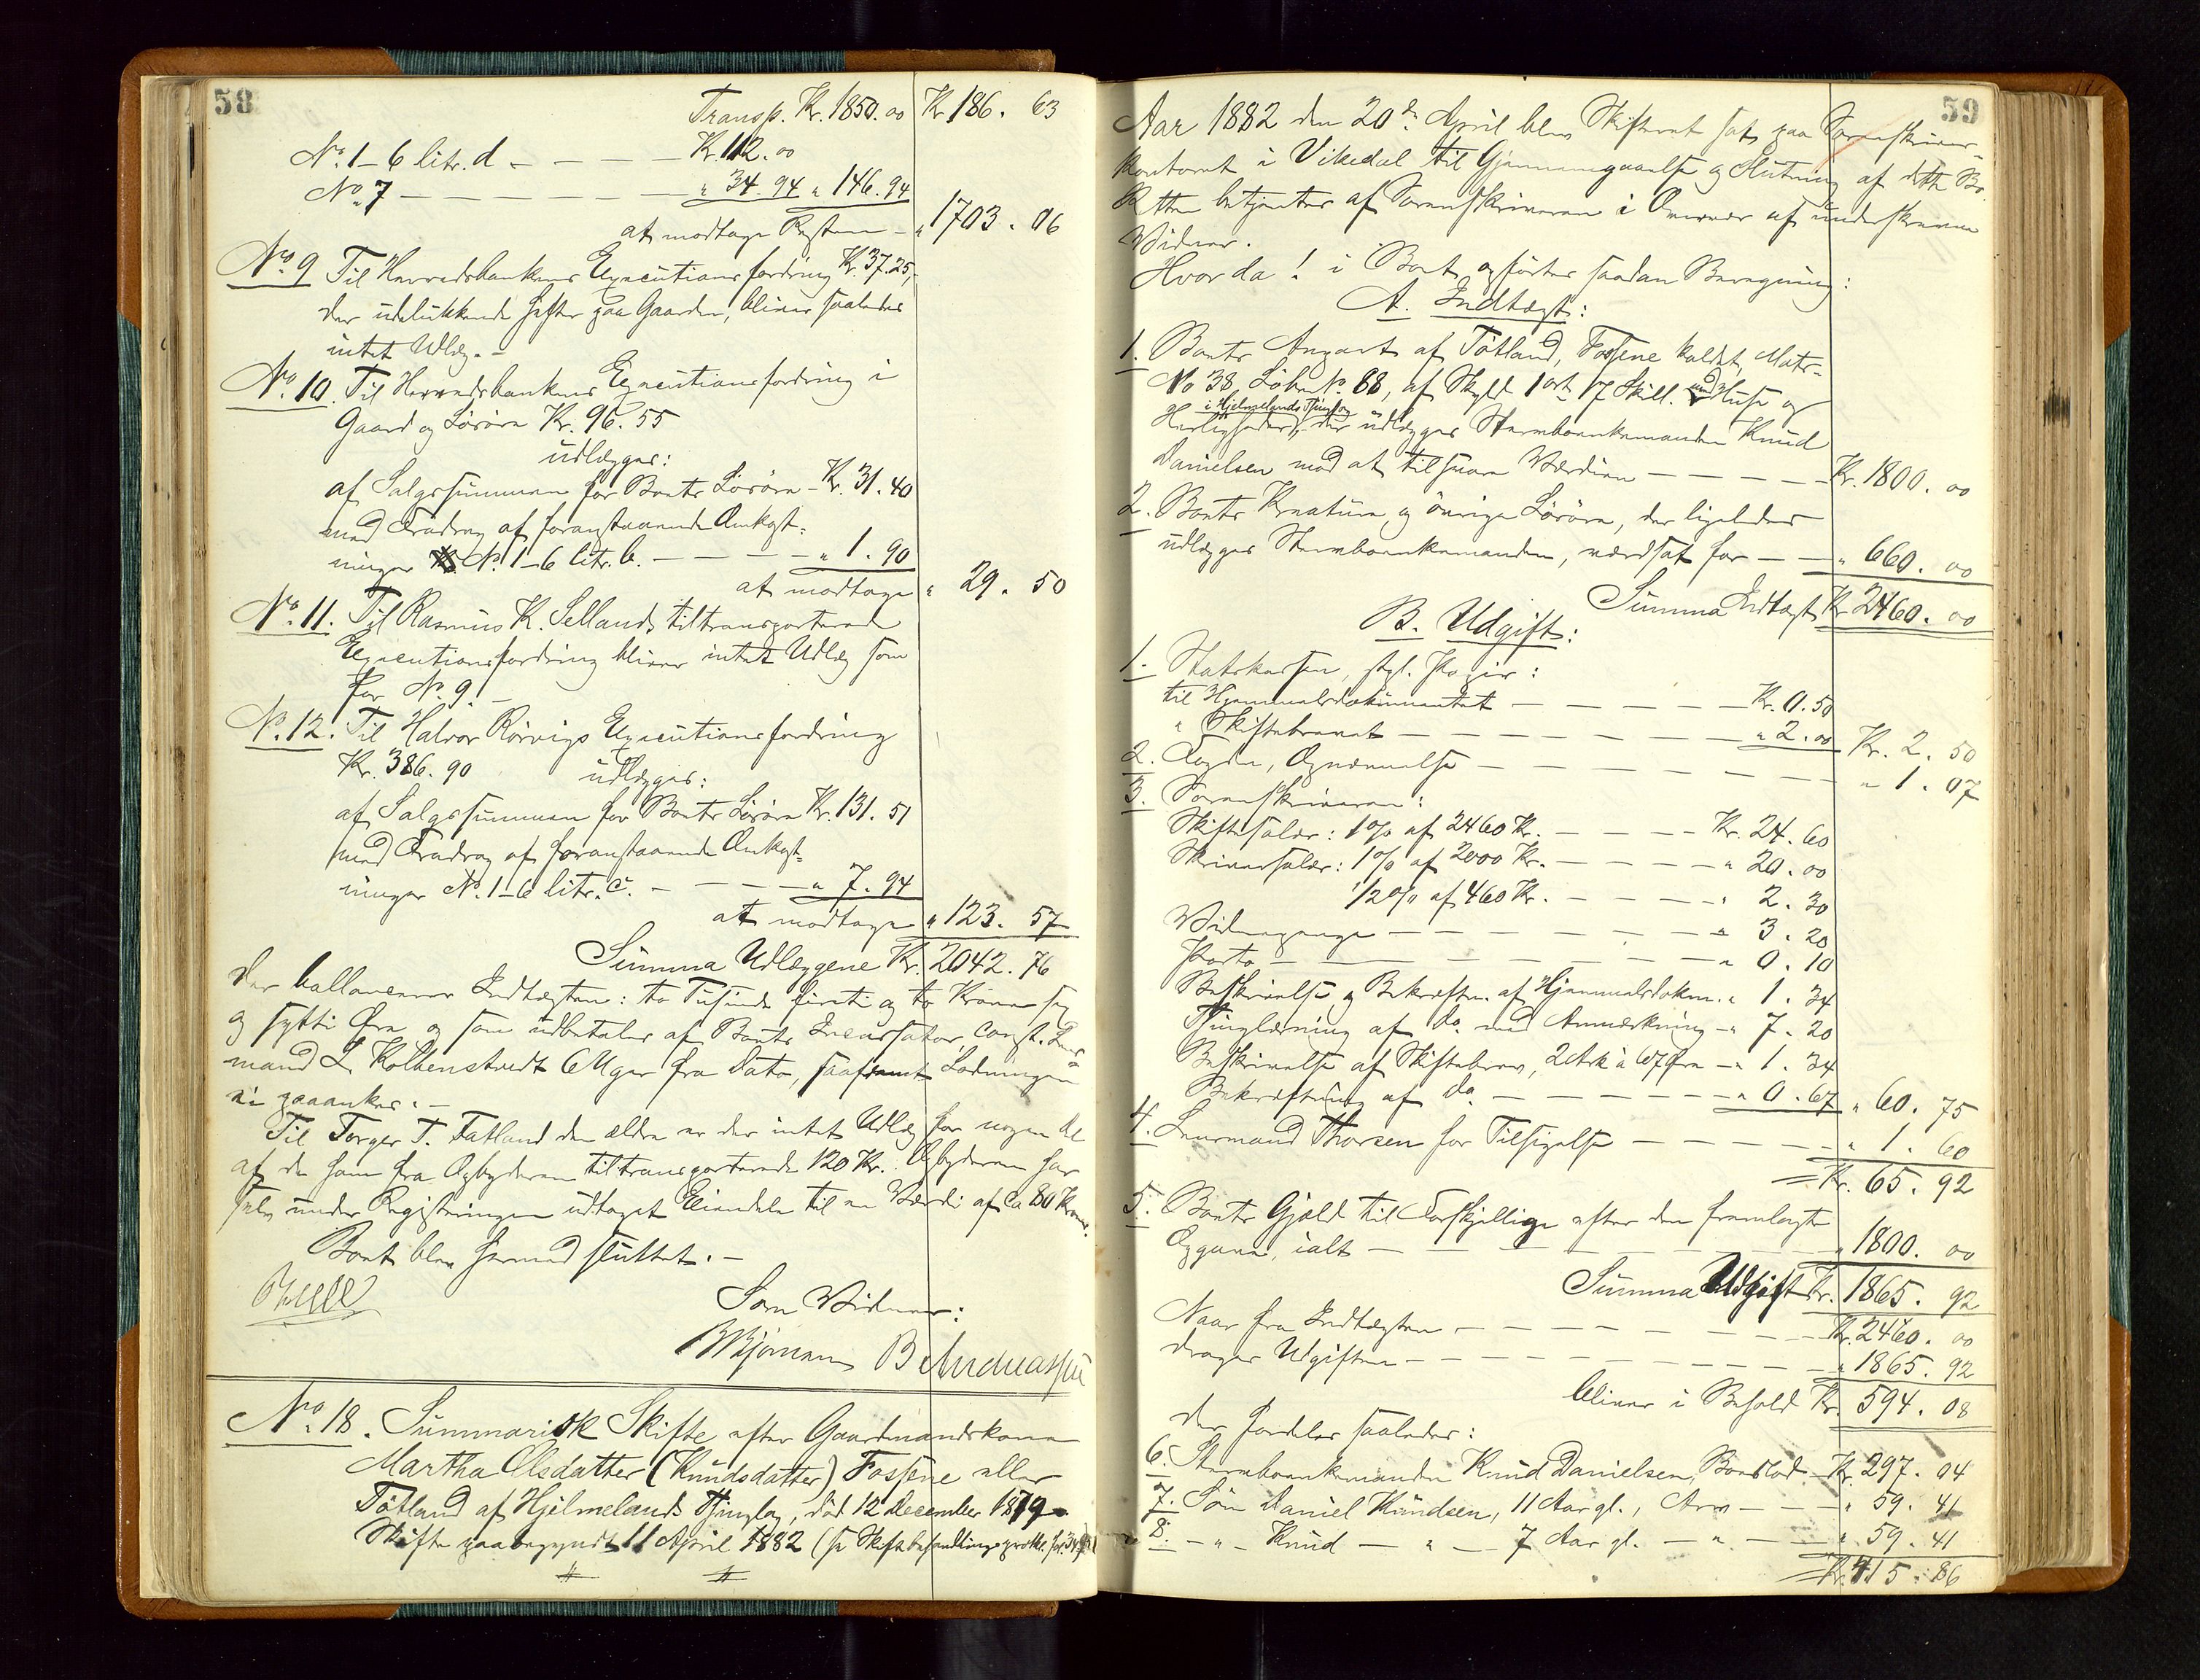 58
Transp. Kr. 1850. 00 Kr. 186. 63
No. 1-6 litr. d - - - - Kr. 112. 00
No. 7 - - - - - - " 34 94 " 146. 94
at modtage Resten - " 1703. 06
No. 9 Til Herredsbankens Executionsfordring Kr. 37.25,
der udelukkende hefter paa Gaarden, bliver saaledes
intet Udlæg. -
No. 10. Til Herredsbankens Executionsfordring i
Gaard og Løsøre Kr. 96. 55
udlægges:
af Salgssummen for Boets Løsøre - Kr. 31. 40
med Fradrag af foranstaaende Omkost-
ninger No. 1-6 litr. b. - - - - " 1. 90
at modtage " 29. 50
No. 11. Til Rasmus K. Sellands tiltransporterede
Executionsfordring bliver intet Udlæg som
for No. 9. -
No. 12. Til Halvor Rörvigs Executionsfordring
Kr. 386. 90 udlægges:
af Salgssummen for Boets Løsøre Kr. 131. 51
med Fradrag af foranstaaende Omkost-
ninger No. 1-6 litr. c. - - - - " 7. 94
at modtage " 123. 57
Summa Udlæggene Kr. 2042. 76
der ballancerer Indtægten: to Tusinde firti og to Kroner sex
og sytti Øre og som udbetales af Boets Incassator, const. Lens-
mand L. Kolbenstvedt 6 Uger fra Dato, saafremt Lodningen
ei paaankes. -
Til Torger T. Fatland den ældre er der intet Udlæg for nogen Del
af de ham fra Opbyderen tiltransporterede 120 Kr. Opbyderen har
selv under Registreringen udtaget Eiendele til en Værdi af ca 80 Kroner.
Boet blev hermed sluttet. -
Som Vidner:
B Andreassen
No. 18. Summarisk Skifte efter Gaardmandskone
Martha Olsdatter (Knudsdatter) Fossene eller
Tötland af Hjelmelands Thinglag, död 12 December 1879
Skifte paabegyndt 11 April 1882 (se Skiftebehandlingsprotkl. fol. 347
59
Aar 1882 den 20de April blev Skifteret sat paa Sorenskriver-
kontoret i Vikedal til Gjennemgaaelse og Slutning af dette Bo
Retten betjentes af Sorenskriveren i Overvær af underskrevne
Vidner.
Hvor da! i Boet opførtes saadan Beregning:
A. Indtægt:
1. Boets Anpart af Tötland, Fossene kaldet, Matr-
No 38, Löbe No. 88, af Skyld 1 ort 17 Skill. med Huse og
i Hjelmelands Thinglag
Herligheder, der udlægges Stervboenkemanden Knud
Danielsen mod at tilsvare Værdien - - - - - Kr. 1800. 00
2. Boets Kreature og övrige Lösöre, der ligeledes
udlægges Stervboenkemanden, værdsat for - - " 660. 00
Summa Indtægt Kr. 2460. 00
B. Udgift:
1. Statskassen, stpl. Papir:
til Hjemmelsdokumentet - - - - - Kr. 0. 50
" Skiftebrevet - - - - - - - " 2. 00 Kr. 2. 50
2. Fogden, Opnævnelse - - - - - - - " 1. 07
3. Sorenskriveren:
Skiftesalær: 1% af 2460 Kr. - - - - Kr. 24. 60
Skriversalær: 1% af 2000 Kr. - - - - " 20. 00
1/2% af 460 Kr. - - - - " 2. 30
Vidnepenge - - - - - - - " 3. 20
Porto - - - - - - - " 0. 10
Beskrivelse og Bekræfteln. af Hjemmelsdokm. " 1. 34
Thinglæsning af do. med Anmærkning - " 7. 20
Beskrivelse af Skiftebrev, 2 Ark à 67 Øre - " 1. 34
Bekræftning af do. - - - - - " 0. 67 " 60. 75
4. Lensmand Thorsen for Tilsigelse - - - - - " 1. 60
Kr. 65. 92
5. Boets Gjæld til Forskjellige efter den fremlagte
Opgave, ialt - - - - - - - " 1800. 00
Summa Udgift Kr. 1865. 92
Naar fra Indtægten - - - - - - - Kr. 2460. 00
drages Udgiften - - - - - - - " 1865. 92
bliver i Behold Kr. 594. 08
der fordeles saaledes:
6. Stervboenkemanden Knud Danielsen, Boeslod - Kr. 297. 04
7. Sön Daniel Knudsen, 11 Aar gl., Arv - - - " 59. 41
8. - " - Knud - " - 7 Aar gl. - " - " 59. 41
Kr. 415. 86